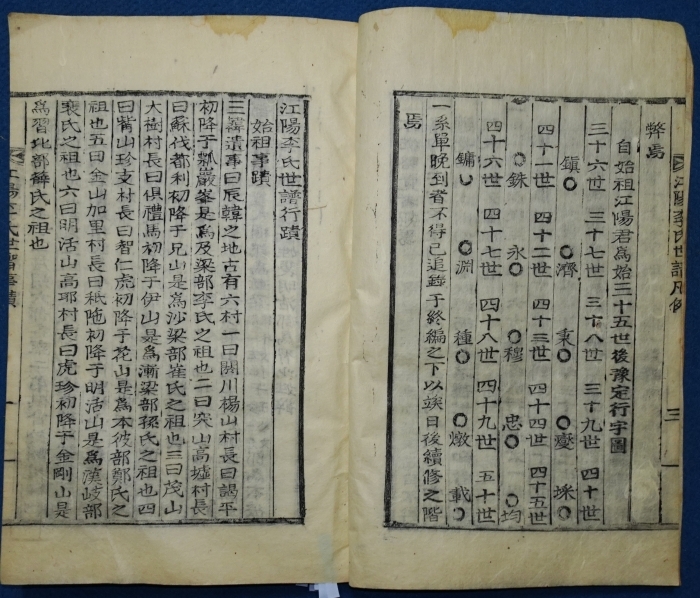 弊焉
自始祖江陽君為始三十五世後豫定行字圖
三十六世 三十七世 三十八世 三十九世 四十世
鎭〇 〇濟 〇 燮〇 〇埰
四十一世 四十二世 四十三世 四十四世 四十五世
〇銖 永〇 〇穆 忠〇 〇均
四十六世 四十七世 四十八世 四十九世 五十世
鏞〇 〇淵 種〇 〇燉 載〇
一系單晚到者不得已追錄于終編之下以竢日後續修之階
焉
江陽李氏世譜凡例
三
江陽李氏世譜行蹟
始祖事蹟
三韓遺事曰辰韓之地古有六村一曰閼川楊山村長曰謁平
初降于瓢巖峯是為及梁部李氏之祖也二曰突山高墟村長
曰蘇伐都利初降于兄山是為沙梁部崔氏之祖也三曰茂山
大樹村長曰俱禮馬初降于伊山是為漸梁部孫氏之祖也四
曰觜山珍支村長曰智仁虎初降于花山是為本彼部鄭氏之
祖也五曰金山加里村長曰秪陁初降于明活山是為漢岐部
裴氏之祖也六曰明活山高耶村長曰虎珍初降于金剛山是
為習比部薛氏之祖也
江陽李氏世譜事蹟